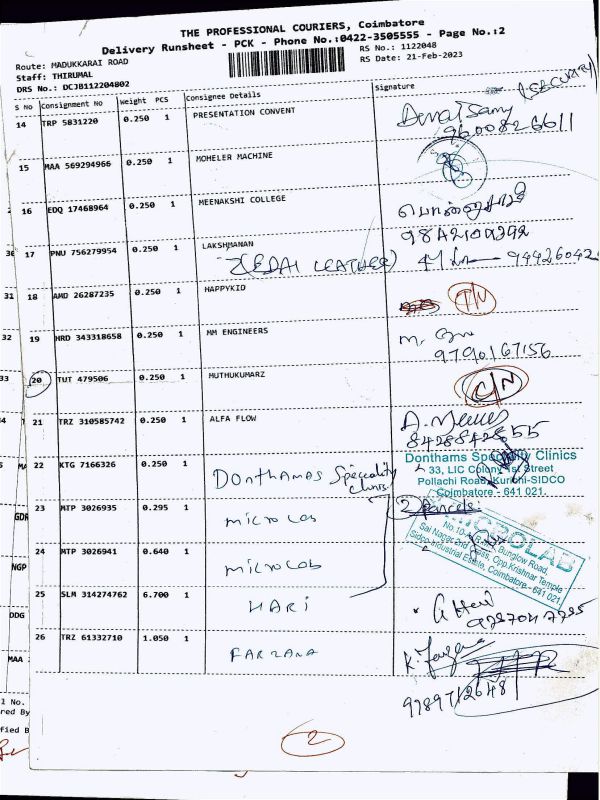 THE PROFESSIONAL COURIERS, Coimbatore
Delivery Runsheet - PCK - Phone No.:0422-3505555 - Page No.:2
Route: MADUKKARAI ROAD
RS No.: 1122048
Staff: THIRUMAL
RS Date: 21-Feb-2023
DRS No.: DCJB112204802
S No Consignment No Weight PCS Consignee Details Signature
(SECURITY)
14 TRP 5831220 0.250 1 PRESENTATION CONVENT
9600826611
15 MAA 569294966 0.250 1 MOHELER MACHINE
16 EDQ 17468964 0.250 1 MEENAKSHI COLLEGE
9842109292
17 PNU 756279954 0.250 1 LAKSHMANAN
(EDAI LEATHER) 944260420
18 AMD 26287235 0.250 1 HAPPYKID
19 HRD 343318658 0.250 1 MM ENGINEERS
9790167156
20 TUT 479506 0.250 1 MUTHUKUMARZ
C/N
21 TRZ 310585742 0.250 1 ALFA FLOW
8428842855
22 KTG 7166326 0.250 1 Donthamas Speciality Clinics
Donthams Speciality Clinics
33, LIC Colony 1st Street
Pollachi Road, Kurichi-SIDCO
Coimbatore - 641 021.
23 MTP 3026935 0.295 1 microlab
2 Parcels
MICROLAB
24 MTP 3026941 0.640 1 microlab
Sidco Industrial Estate, Coimbatore - 641 021
25 SLM 314274762 6.700 1 HARI
26 TRZ 61332710 1.050 1 FARZANA
K. Farzana
9789712648
2